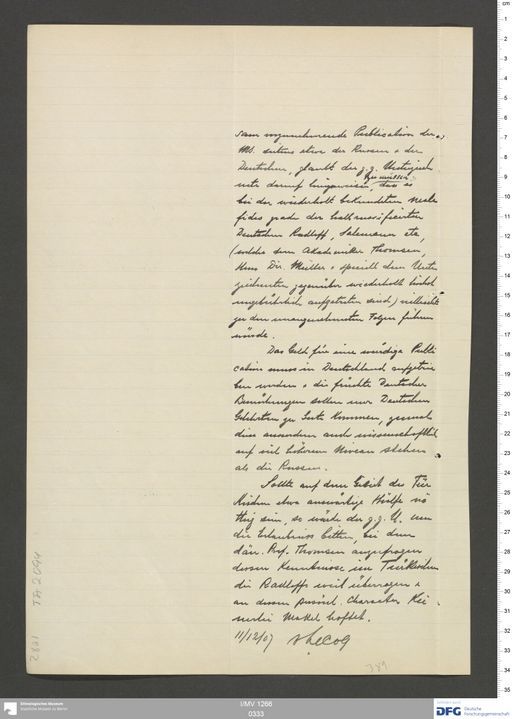 sam vorzunehmende Publication der
Ms. seitens etwa der Russen + der
Deutschen, glaubt der g.g. Unterzeich
nete darauf hinweisen zu müssen, dass es
bei der wiederholt bekundeten mala
fides grade der halbrussificierten
Deutschen Radloff, Salemann etc,
(welche dem Akademiker Thomsen,
Herrn Dir. Müller + speciell dem Unter
zeichneten gegenüber wiederholt höchst
ungebührlich aufgetreten sind) vielleicht
zu den unangenehmsten Folgen führen
würde.
Das Geld für eine würdige Publi
cation muss in Deutschland aufgetrie
ben werden + die Früchte Deutscher
Bemühungen sollen nur Deutschen
Gelehrten zu Gute kommen, zumal
diese ausserdem auch wissenschaftlich
auf viel höherem Niveau stehen
als die Russen.
Sollte auf dem Gebiet des Tür
kischen etwa auswärtige Hülfe nö
thig sein, so würde der g.g. U. um
die Erlaubniss bitten, bei dem
dän. Prof. Thomsen anzufragen
dessen Kenntnisse im Türkischen
die Radloffs weit überragen +
an dessen persönl. Character kei
nerlei Makel haftet.
11/12/07 v Lecoq
389
2821 TA 2094
Ethnologisches Museum
Staatliche Museen zu Berlin
I/MV 1266
0333
DFG Deutsche
Forschungsgemeinschaft